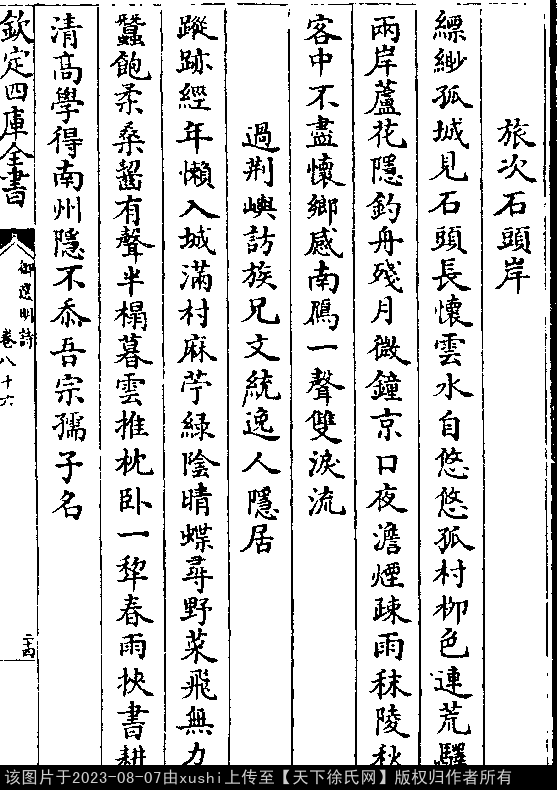 旅次石頭岸
縹緲孤城見石頭長懷雲水自悠悠孤村柳色連荒驛
兩岸蘆花隱釣舟殘月微鐘京口夜澹煙疎雨秣陵秋
客中不盡懷鄉感南鴈一聲雙淚流
過荆嶼訪族兄文統逸人隱居
蹤跡經年懶入城滿村麻苧綠陰晴蝶尋野菜飛無力
蠶飽柔桑齧有聲半榻暮雲推枕卧一犂春雨挾書耕
清高學得南州隱不忝吾宗孺子名
欽定四庫全書
御選明詩
卷八十六
二十四
该图片于2023-08-07由xushi上传至【天下徐氏网】版权归作者所有